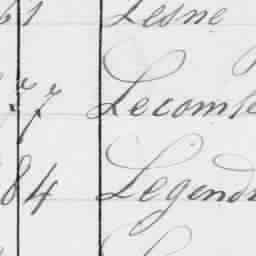 61 Lesne
27 Lecomte
84 Legend